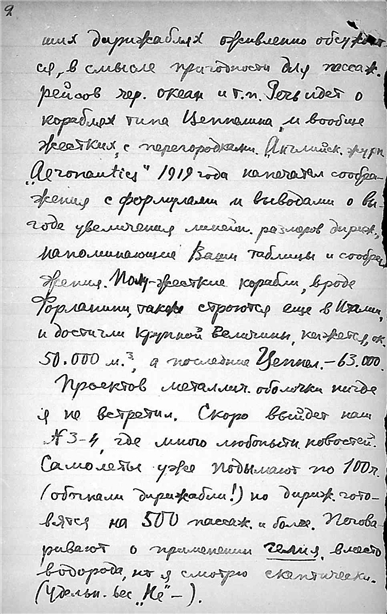 2
ших дирижаблях оживленно обсуждает
ся, в смысле пригодности для пассаж.
рейсов чер. океан и т.п. Речь идет о
кораблях типа Цеппелина, и вообще
жестких, с перегородками. Английск. журн.
"Aeronautics" 1919 года напечатал сообра-
жения с формулами и выводами о вы-
годе увеличения линейн. размеров дириж.,
напоминающие Ваши таблицы и сообра
жения. Полу-жесткие корабли, вроде
Форланини, также строются еще в Италии,
и достигли крупной величины, кажется, ок.
50.000 м.³, а последние Цеппел. – 63.000.
Проектов металлич. оболочки нигде
я не встретил. Скоро выйдет наш
№ 3-4, где много любопытн. новостей.
Самолеты уже подымают по 100 ч.
(обогнали дирижабли!) но дириж. гото-
вятся на 500 пассаж. и более. Погова
ривают о применении гелия, вместо
водорода, но я смотрю скептически.
(Удельн. вес "He" – ).